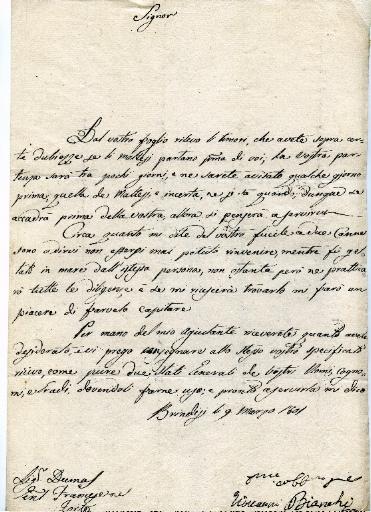 Signor
Dal vostro foglio rilevo li timori, che avete sopra cer-
te dubiezze se li Maltesi partano prima di voi, la vostra par-
tenza sarà tra pochi giorni, e ne sarete avisato qualche giorno
prima; quella de Maltesi, è incerta, ne si sa quando; dunque se
accadrà prima della vostra, allora si penserà a provvedervi
Circa quanto mi dite del vostro fucile a due canne
sono a dirvi non essersi mai potuto rinvenire, mentre fu get-
tato in mare dall'istessa persona, non ostante però ne prattica-
rò tutte le diligenze, e se mi riuscirà trovarlo mi farò un
piacere di farvelo capitare
Per mano del mio Ajutante riceverete quanto avete
desiderato, e vi prego consegnare allo stesso vostro specificato
ricivo, come pure due Stati Generali de vostri Nomi, cogno-
mi, e Gradi, dovendoli farne uso; e pronto a servirla mi dico
Brindisi li 9 Marzo 1801
Sigr. Dumas
Genl. Francese
Giovanni Bianchi